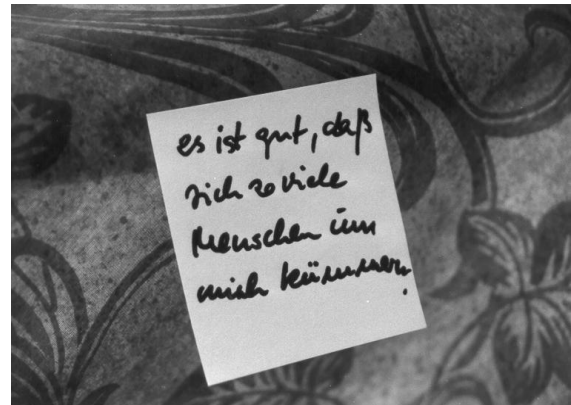 es ist gut, daß
sich so viele
Menschen um
mich kümmern.